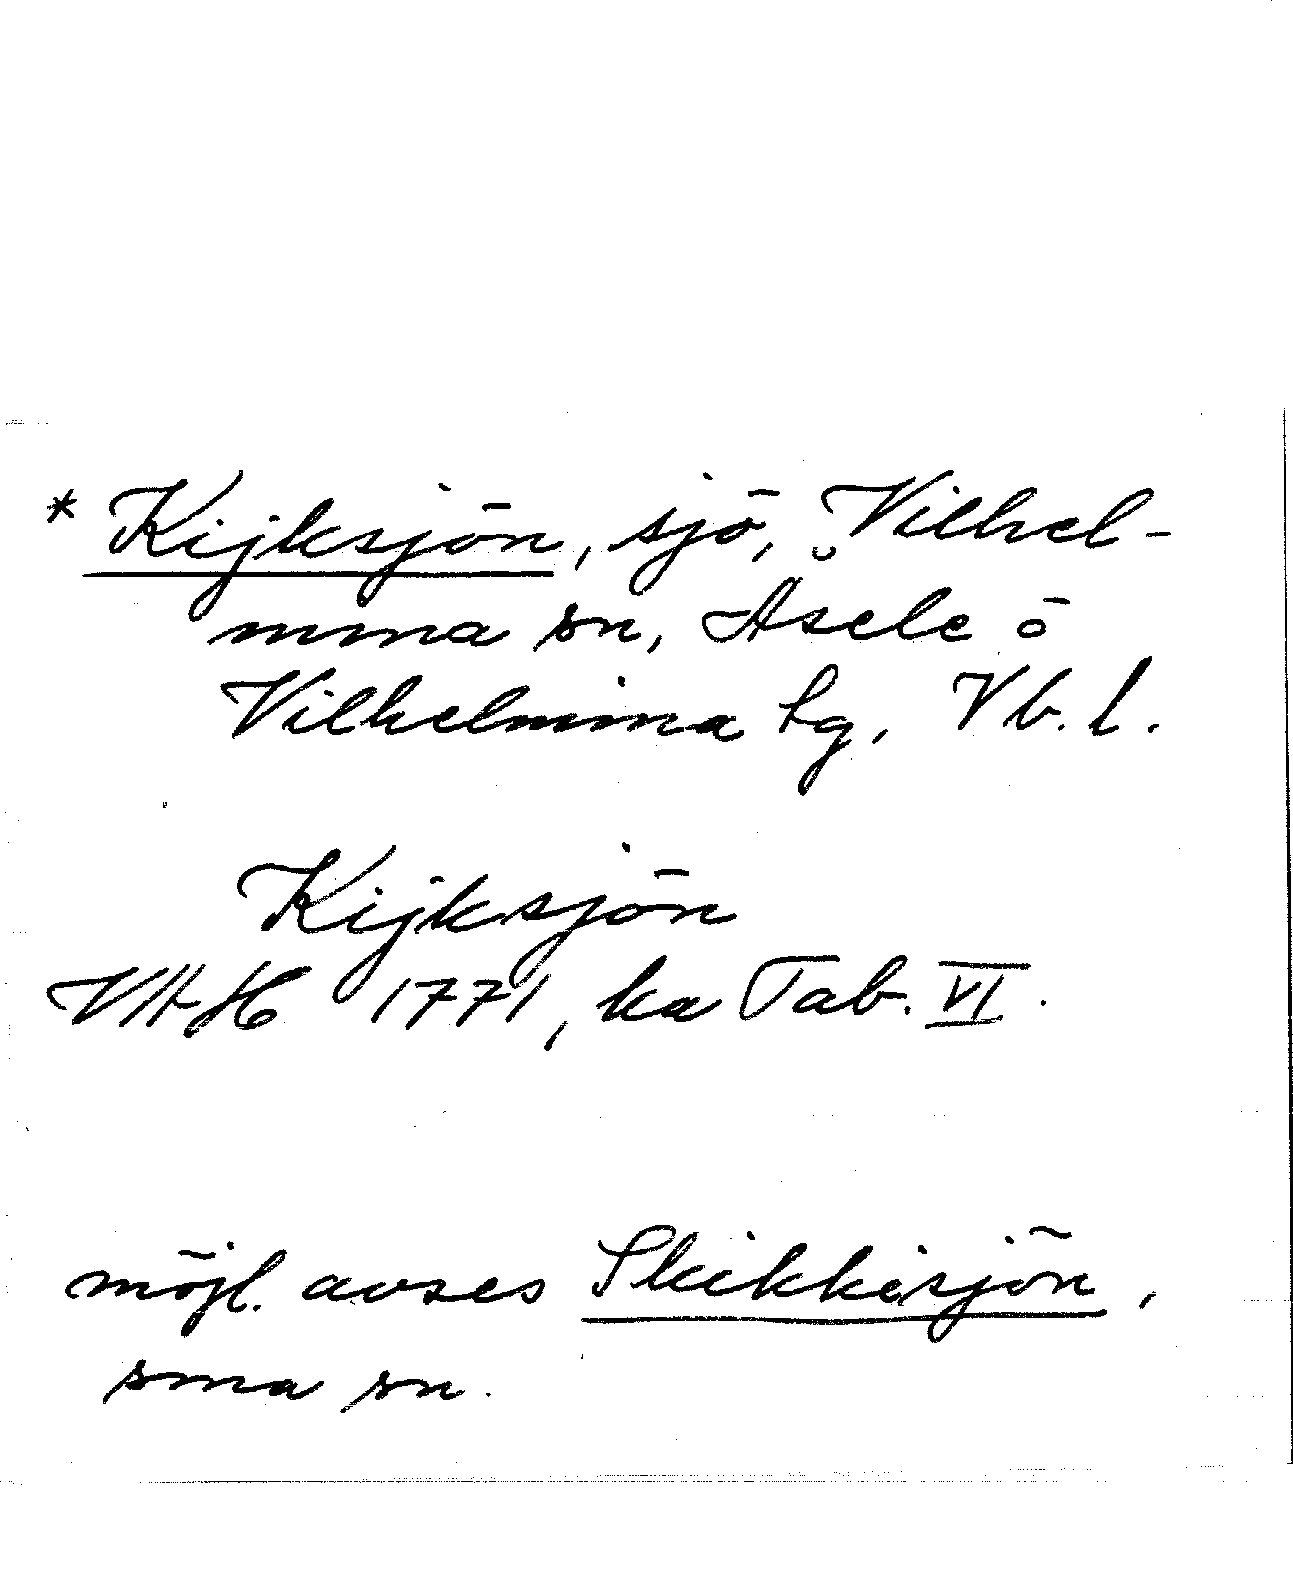 * Kijksjön, sjö, Vilhel-
mina sn, Åsele o
Vilhelmina lg, Vb. l.
Kijksjön
VHH 1771, ka Tab. VI.
möjl. avses Skikkisjön,
sma sn.